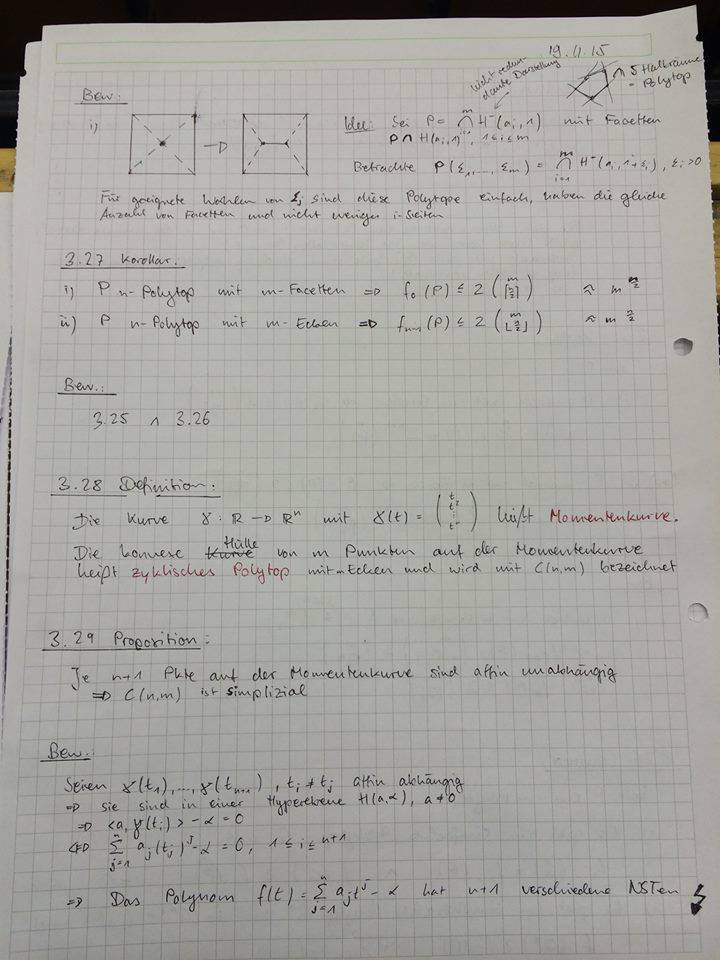 19.11.15
Bew:
i)
Idee: Sei P = ⋂_{i=1}^{m} H⁻(a_i, 1) mit Facetten
nicht redundante Darstellung
∩ 5 Halbräume
= Polytop
P ∩ H(a_i, 1), 1≤i≤m
Betrachte P(ξ_1, ..., ξ_m) = ⋂_{i=1}^{m} H⁻(a_i, 1+ξ_i), ξ_i>0
Für geeignete Wahlen von ξ_j sind diese Polytope einfach, haben die gleiche
Anzahl von Facetten und nicht weniger i-Seiten
3.27 Korollar.
i) P n-Polytop mit m-Facetten => f_0(P) ≤ 2 (m ⌈n/2⌉) ≈ m^{n/2}
ii) P n-Polytop mit m-Ecken => f_{n-1}(P) ≤ 2 (m ⌊n/2⌋) ≈ m^{n/2}
Bew.:
3.25 ∧ 3.26
3.28 Definition:
Die Kurve γ: ℝ → ℝⁿ mit γ(t) = (t t² ⋮ tⁿ) heißt Momentenkurve.
Die konvexe Kurve Hülle von m Punkten auf der Momentenkurve
heißt zyklisches Polytop mit m Ecken und wird mit C(n,m) bezeichnet
3.29 Proposition:
Je n+1 Pkte auf der Momentenkurve sind affin unabhängig
=> C(n,m) ist simplizial
Bew.:
Seien γ(t_1), ..., γ(t_{n+1}), t_i ≠ t_j affin abhängig
=> sie sind in einer Hyperebene H(a,α), a≠0
=> <a, γ(t_i)> - α = 0
<=> ∑_{j=1}^{n} a_j(t_j)^j - α = 0, 1 ≤ i ≤ n+1
=> Das Polynom f(t) = ∑_{j=1}^{n} a_j t^j - α hat n+1 verschiedene NSTen ↯